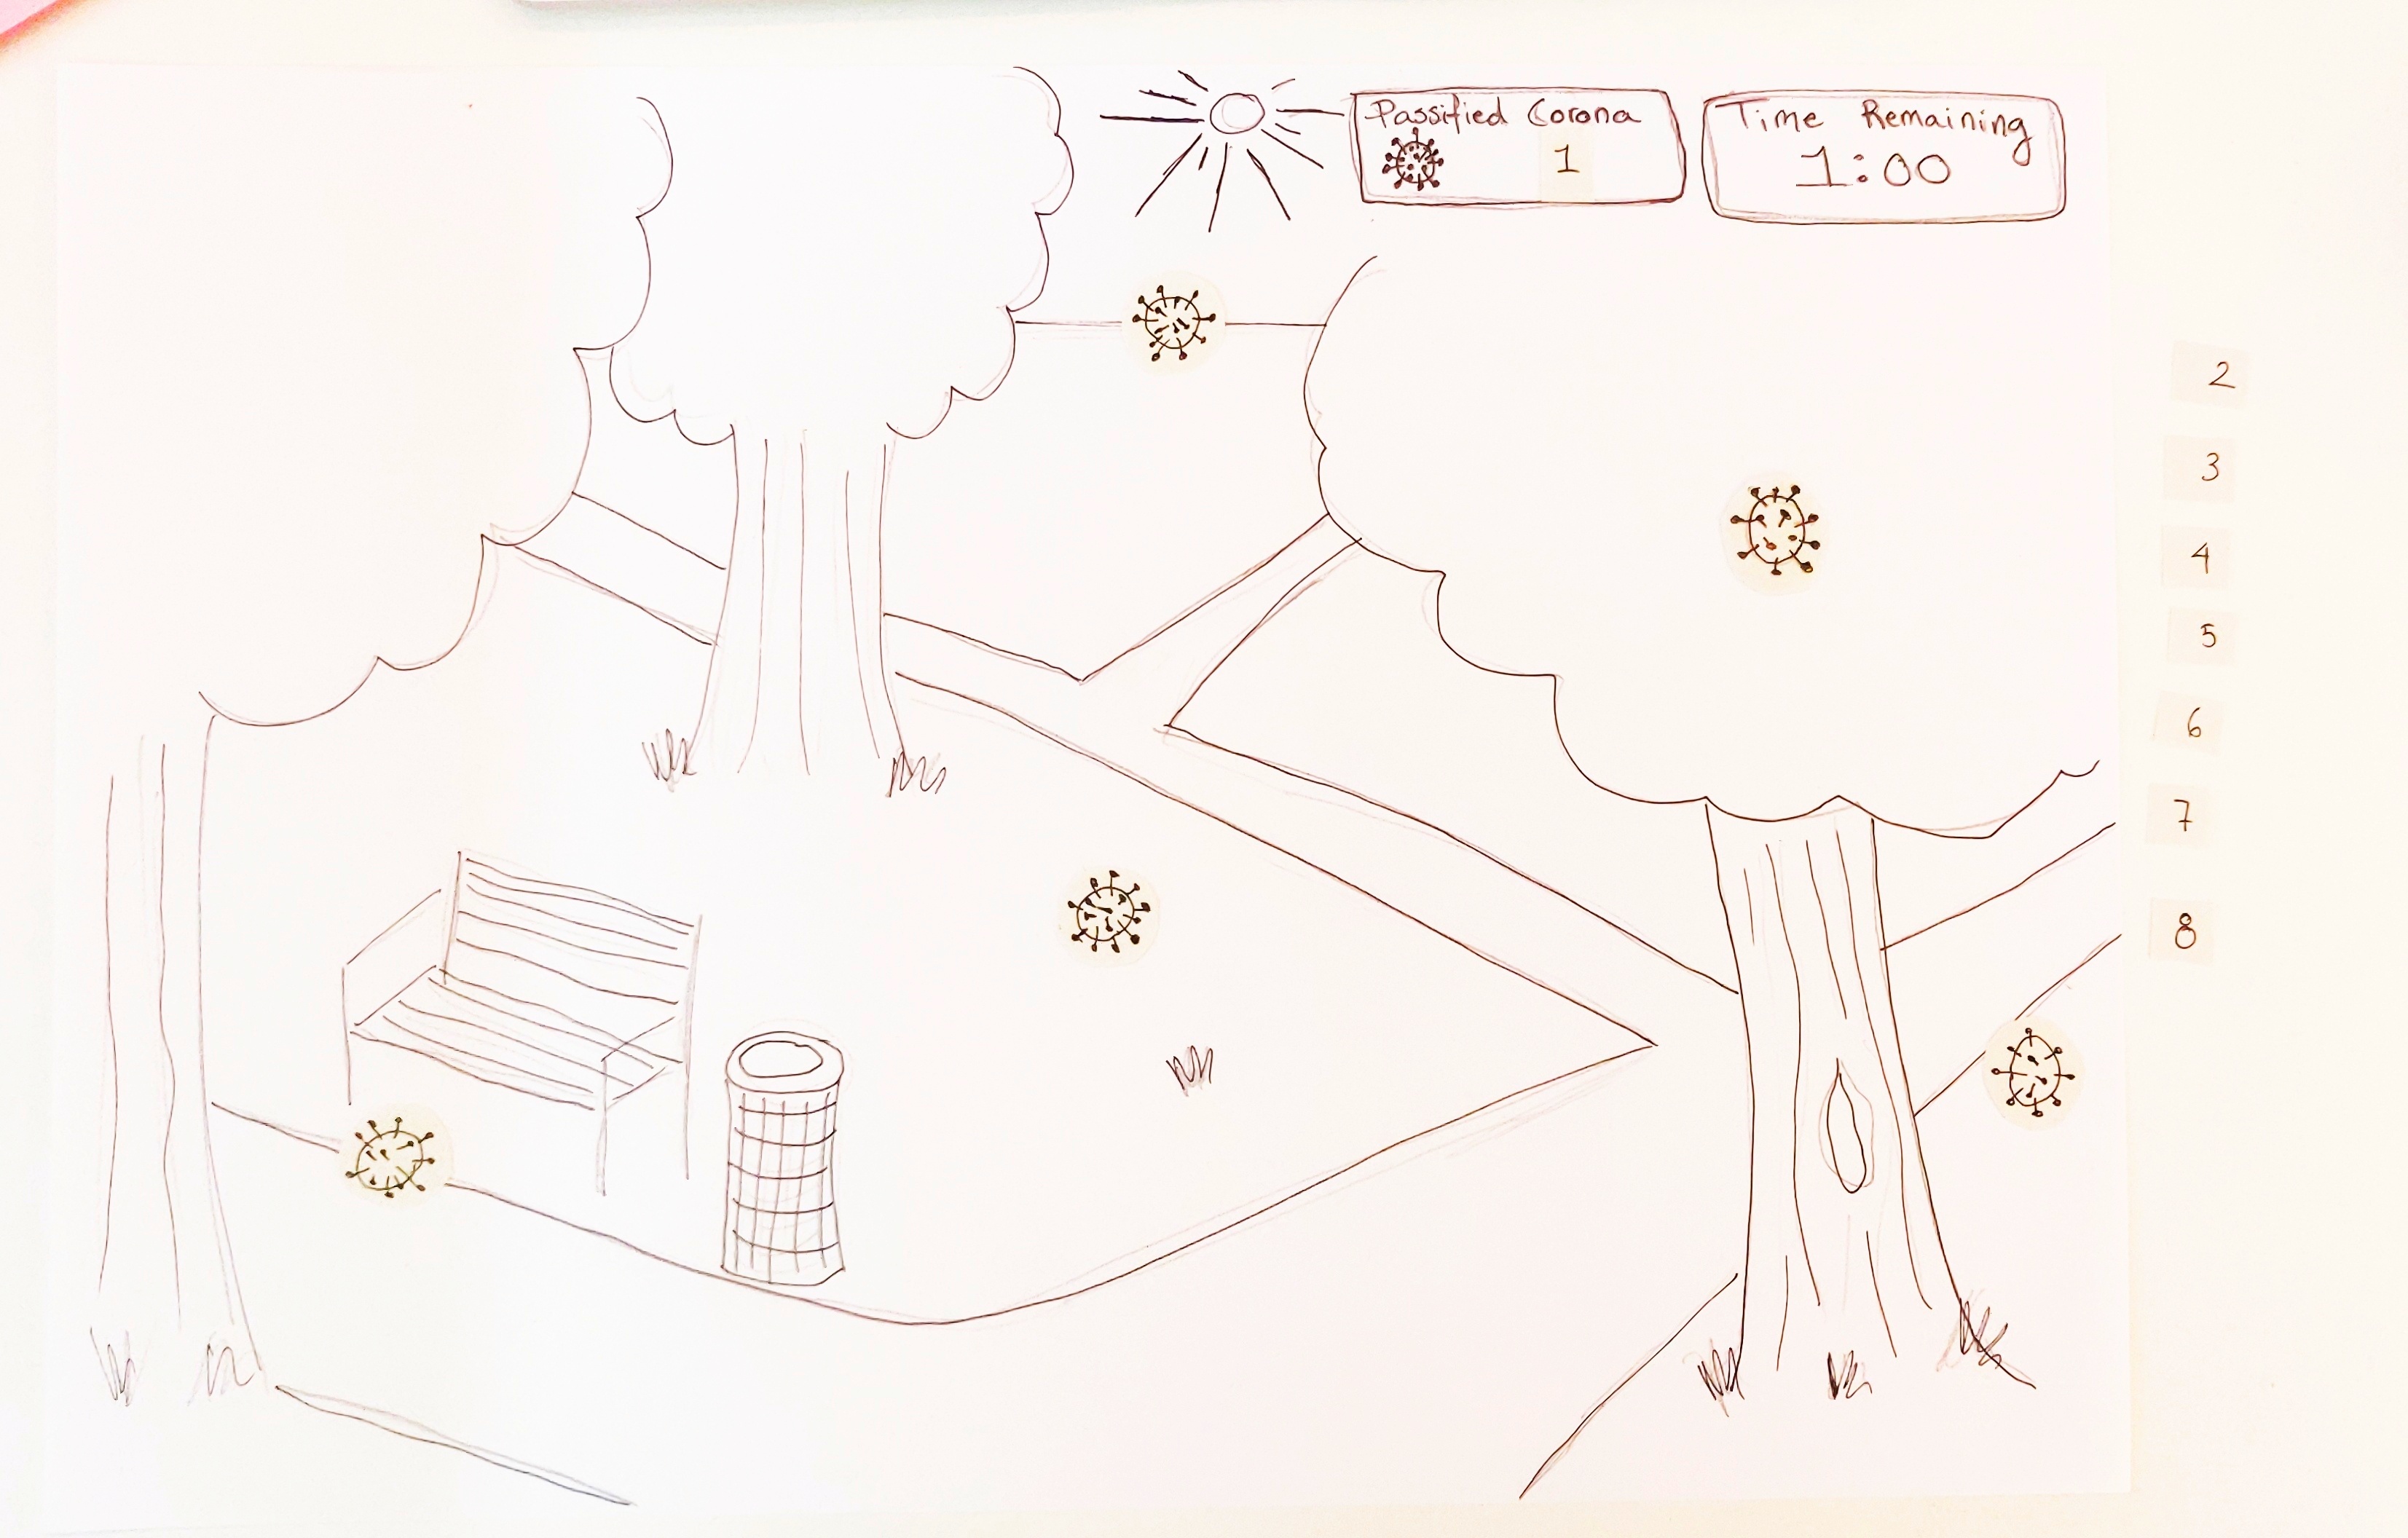 Passified Corona
1
Time Remaining
1:00
2
3
4
5
6
7
8